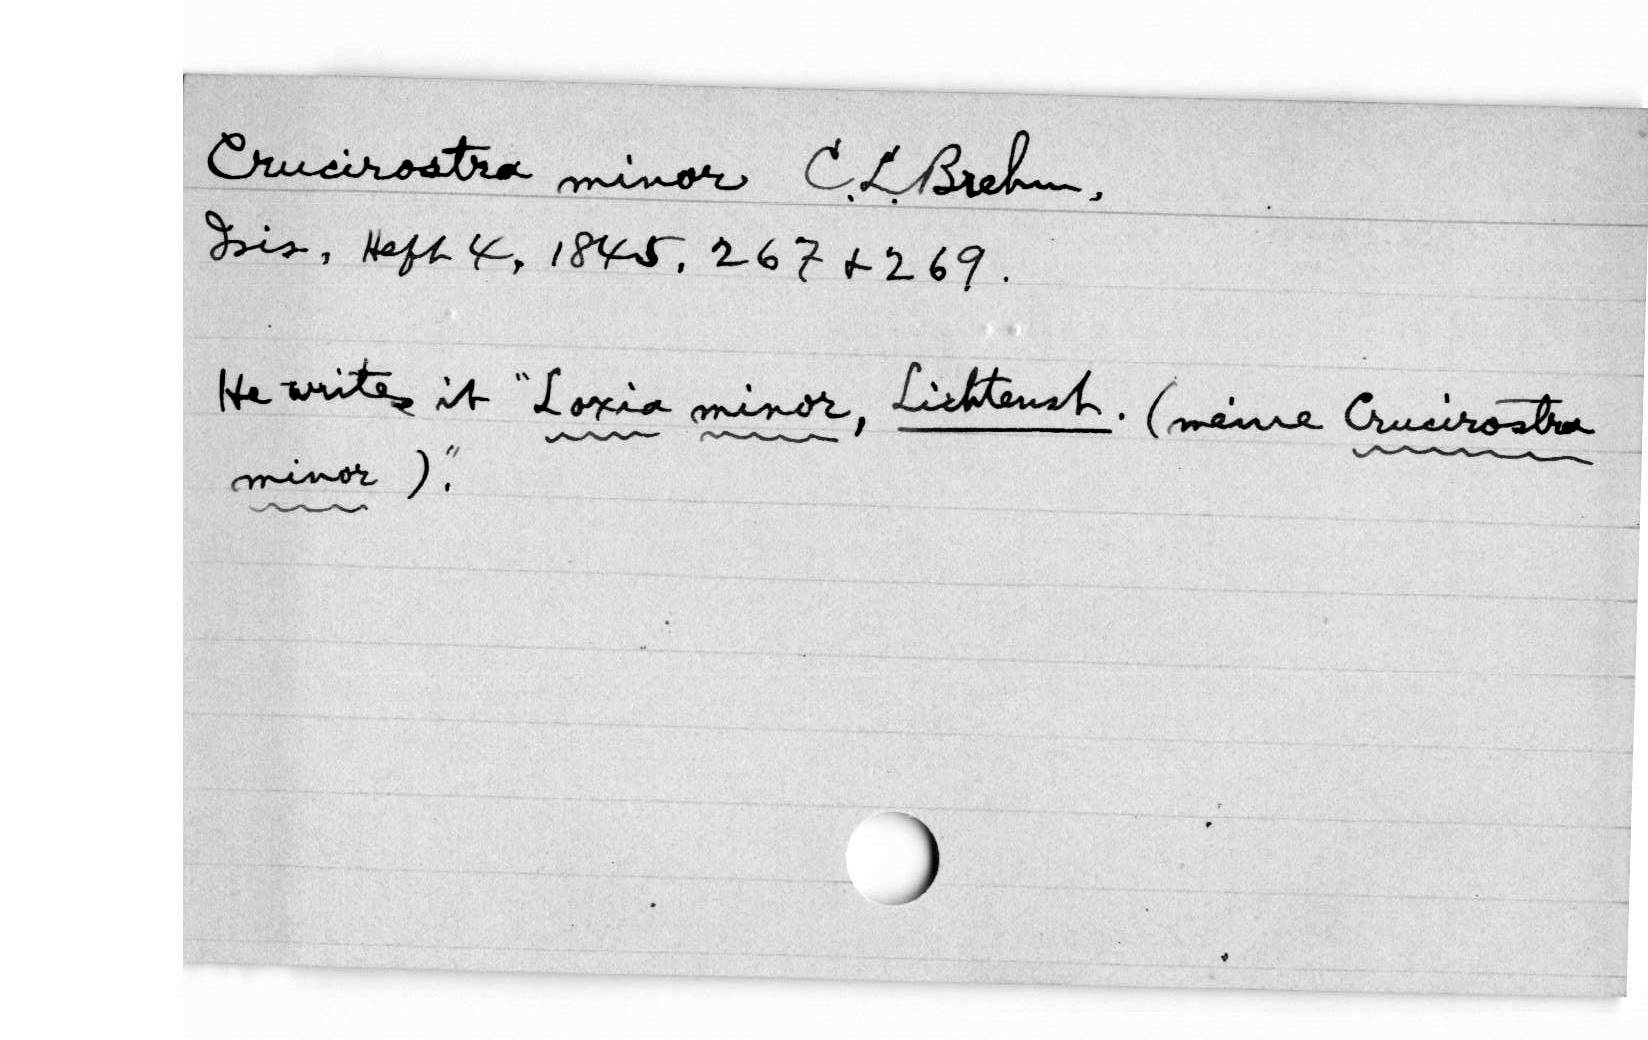 Crucirostra minor C.L. Brehm,
Isis, Heft 4, 1845, 267 + 269.
He writes it "Loxia minor, Lichtenst. (meine Crucirostra
minor)."